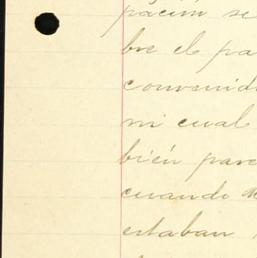 pacim se
bre el pa
convenid
mi cual
bién pare
cuando
estaban